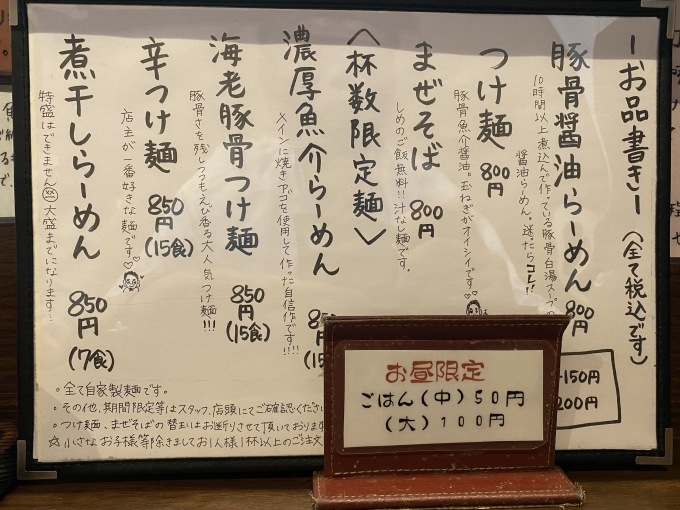 ーお品書きー(全て税込です)
豚骨醤油らーめん 800円
10時間以上煮込んで作っている豚骨白湯スープの
醤油らーめん。迷ったらコレ!!
つけ麺 800円
豚骨魚介醤油。玉ねぎがオイシイです
まぜそば 800円
しめのご飯無料!!汁なし麺です。
〈杯数限定麺〉
濃厚魚介らーめん 85
メインに焼きアゴを使用して作った自信作です!!!
(15
海老豚骨つけ麺 850円(15食)
豚骨さを残しつつもえび香る大人気つけ麺!!!
辛つけ麺 850円(15食)
店主が一番好きな麺です
煮干しらーめん 850円(7食)
特盛はできません 大盛までになります…
150円
200円
・全て自家製麺です。
・その他、期間限定等はスタッフ、店頭にてご確認ください
・つけ麺、まぜそばの替玉はお断りさせて頂いております
☆小さなお子様等除きましてお1人様1杯以上のご注文
お昼限定
ごはん(中)50円
(大)100円